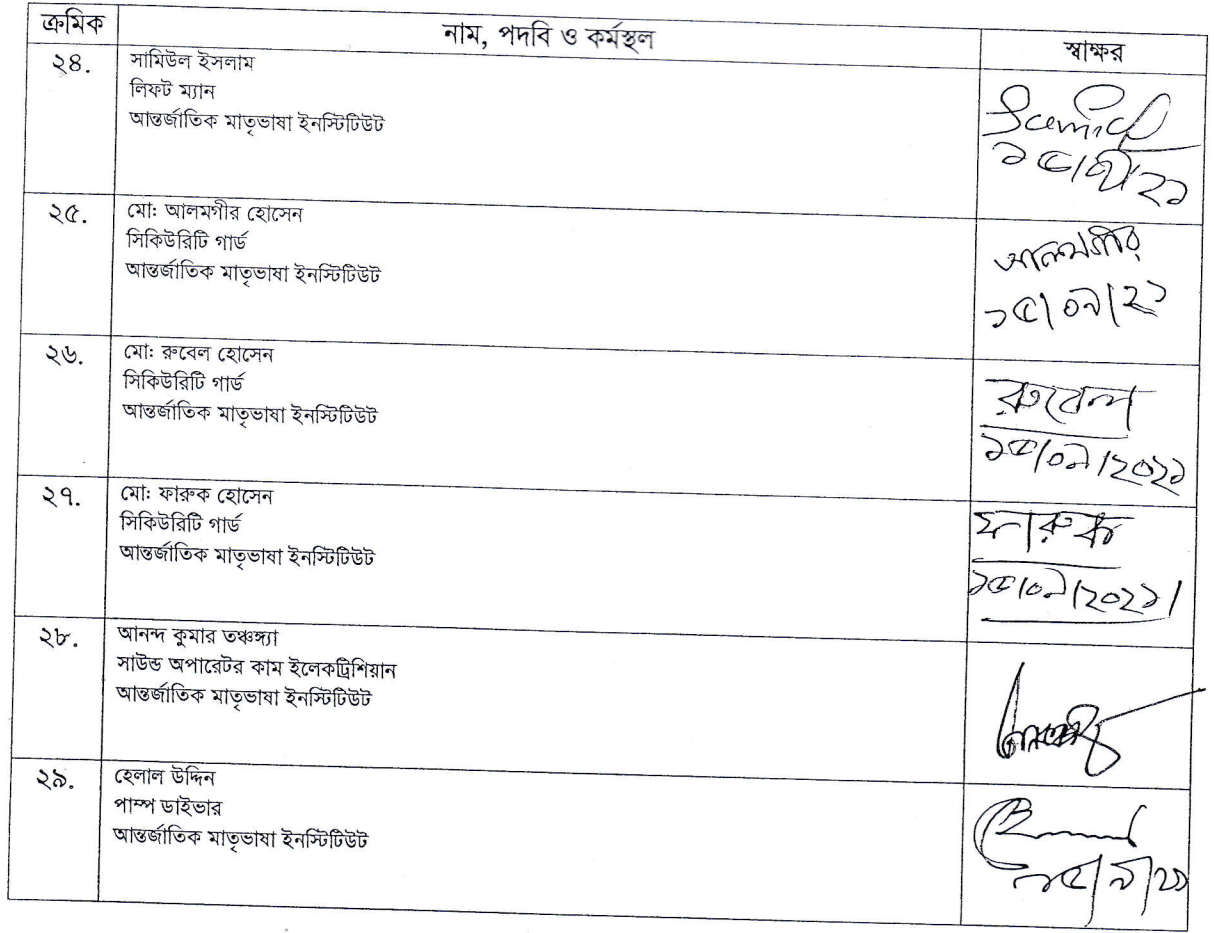 ক্রমিক নাম, পদবি ও কর্মস্থল স্বাক্ষর
২৪. সামিউল ইসলাম
লিফট ম্যান
আন্তর্জাতিক মাতৃভাষা ইনস্টিটিউট
২৫. মো: আলমগীর হোসেন
সিকিউরিটি গার্ড
আন্তর্জাতিক মাতৃভাষা ইনস্টিটিউট
আলমগীর
১৫/০৯/২১
২৬. মো: রুবেল হোসেন
সিকিউরিটি গার্ড
আন্তর্জাতিক মাতৃভাষা ইনস্টিটিউট
রুবেল
১৫/০৯/২০২১
২৭. মো: ফারুক হোসেন
সিকিউরিটি গার্ড
আন্তর্জাতিক মাতৃভাষা ইনস্টিটিউট
ফারুক
১৫/০৯/২০২১।
২৮. আনন্দ কুমার তঞ্চঙ্গ্যা
সাউন্ড অপারেটর কাম ইলেকট্রিশিয়ান
আন্তর্জাতিক মাতৃভাষা ইনস্টিটিউট
২৯. হেলাল উদ্দিন
পাম্প ডাইভার
আন্তর্জাতিক মাতৃভাষা ইনস্টিটিউট
১৫/৯/২১